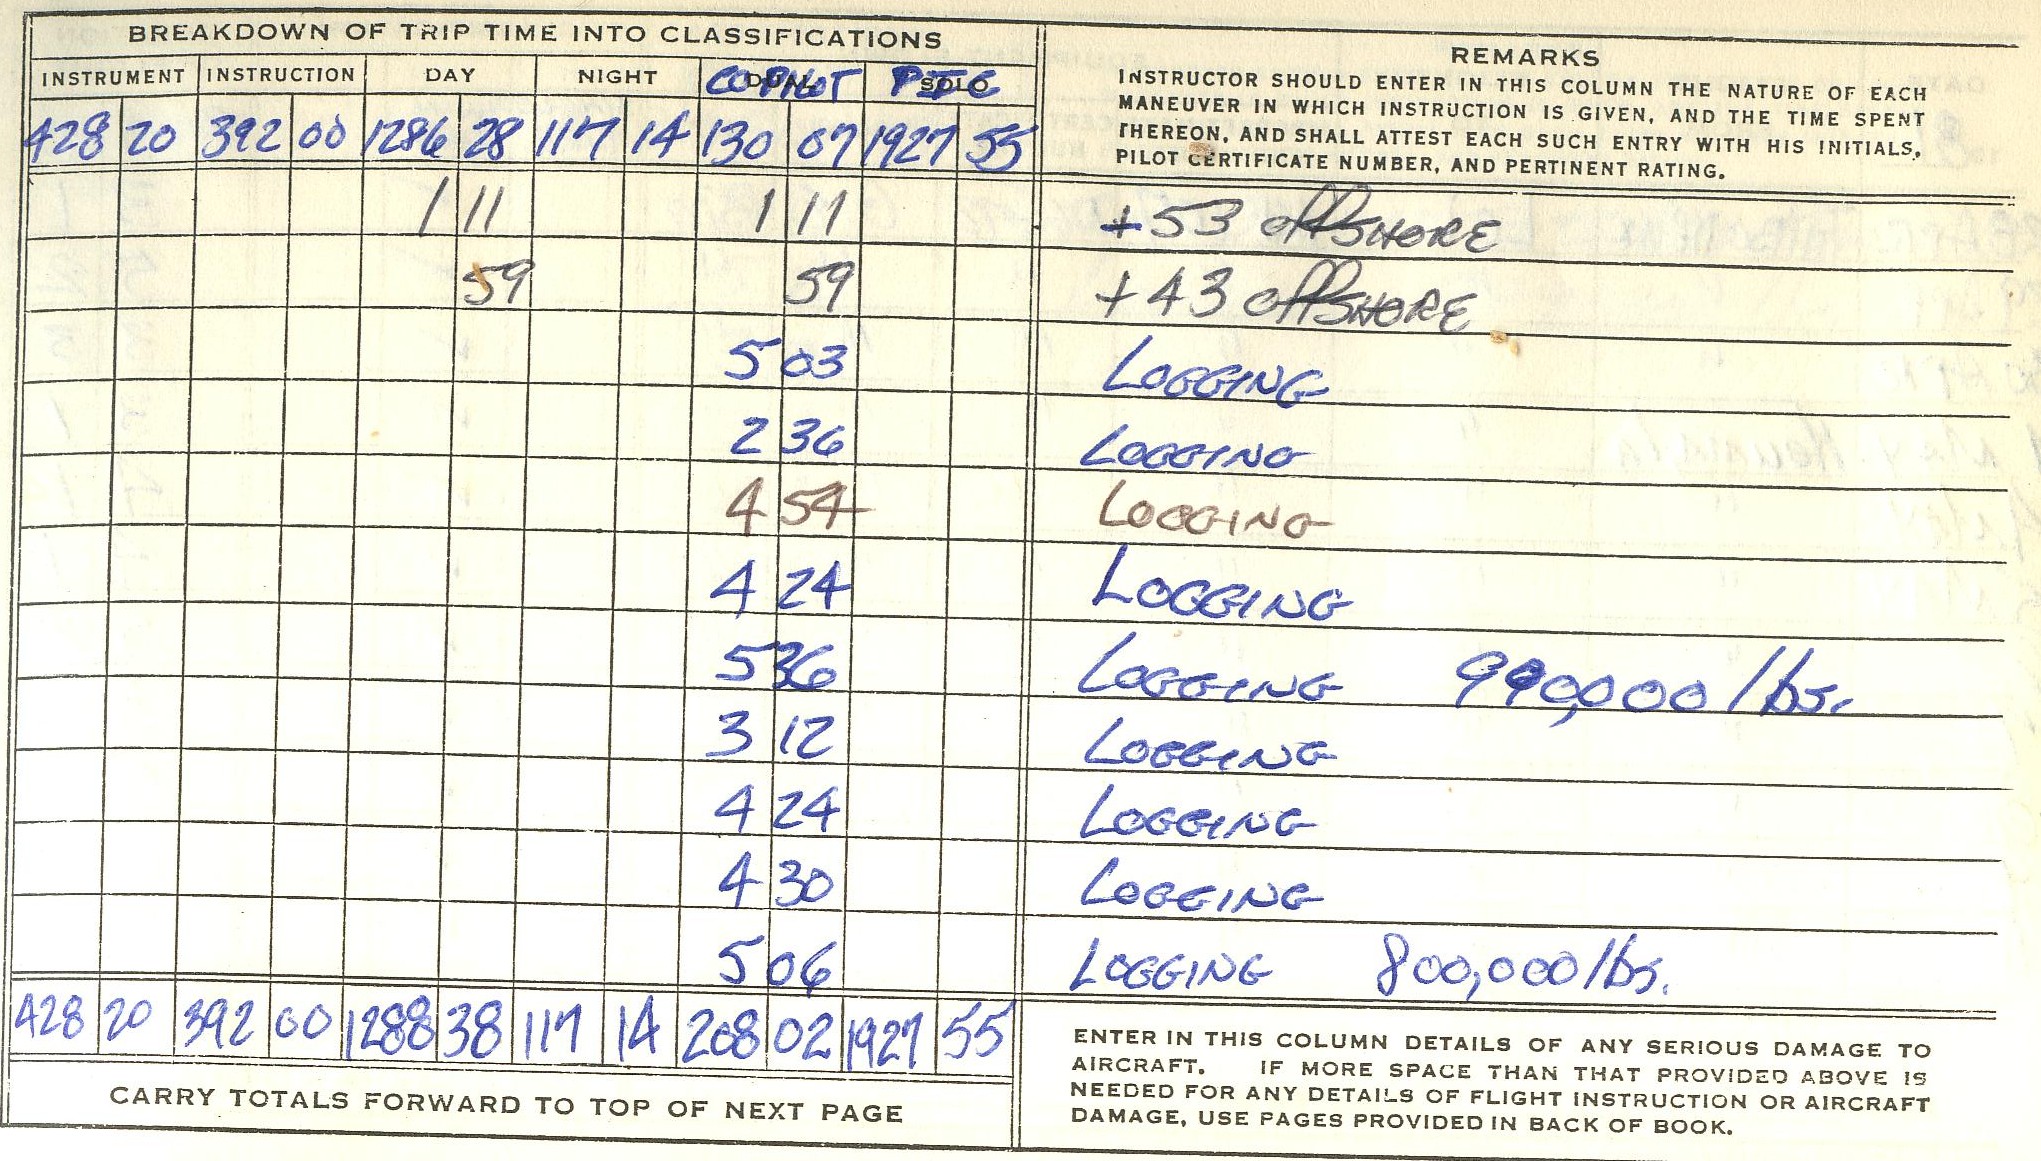 BREAKDOWN OF TRIP TIME INTO CLASSIFICATIONS
INSTRUMENT INSTRUCTION DAY NIGHT DUAL COPILOT SOLO PIC
428 20 392 00 1286 28 117 14 130 07 1927 55
REMARKS
INSTRUCTOR SHOULD ENTER IN THIS COLUMN THE NATURE OF EACH
MANEUVER IN WHICH INSTRUCTION IS GIVEN, AND THE TIME SPENT
THEREON, AND SHALL ATTEST EACH SUCH ENTRY WITH HIS INITIALS,
PILOT CERTIFICATE NUMBER, AND PERTINENT RATING.
1 11 1 11 +53 offSHORE
59 59 +43 offSHORE
5 03 LOGGING
2 36 LOGGING
4 54 LOGGING
4 24 LOGGING
5 36 LOGGING 990,000 lbs.
3 12 LOGGING
4 24 LOGGING
4 30 LOGGING
5 06 LOGGING 800,000 lbs.
428 20 392 00 1288 38 117 14 208 02 1927 55
CARRY TOTALS FORWARD TO TOP OF NEXT PAGE
ENTER IN THIS COLUMN DETAILS OF ANY SERIOUS DAMAGE TO
AIRCRAFT. IF MORE SPACE THAN THAT PROVIDED ABOVE IS
NEEDED FOR ANY DETAILS OF FLIGHT INSTRUCTION OR AIRCRAFT
DAMAGE, USE PAGES PROVIDED IN BACK OF BOOK.